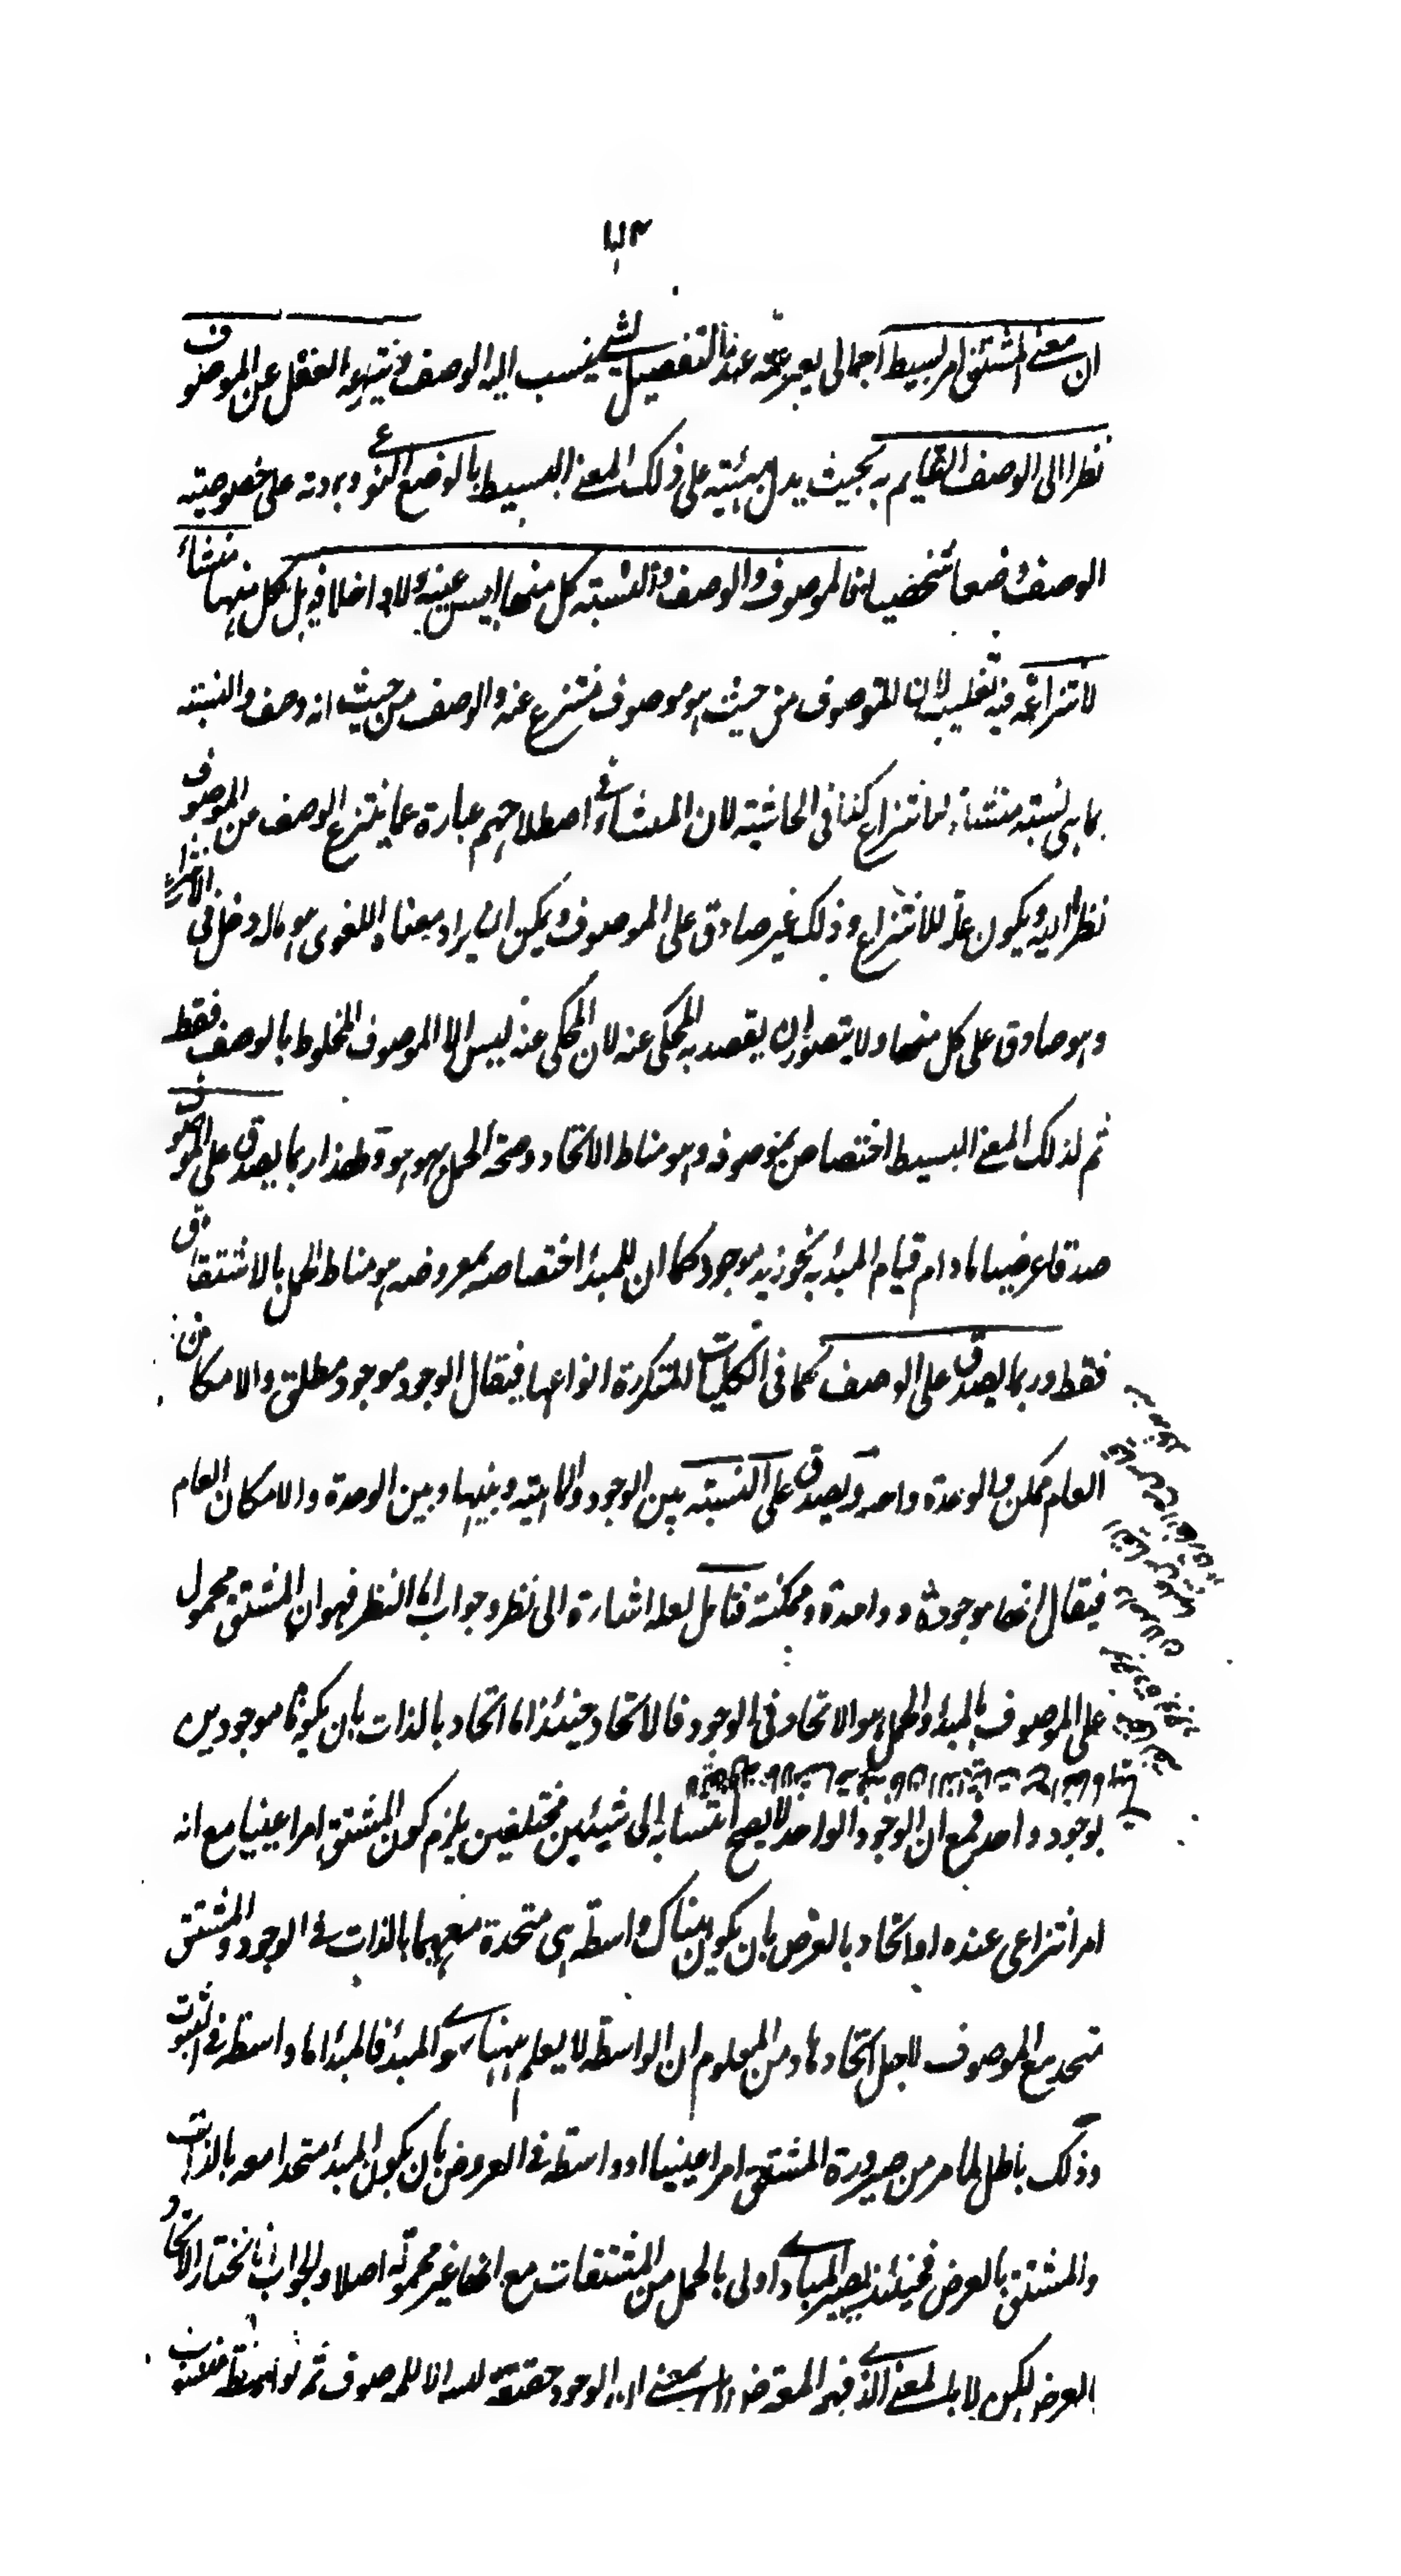 ان معنى المشتق امر بسيط اجمالى يعبر عنه عند التفصيل لشئ ينسب اليه الوصف وينتزعه العقل عن الموصوف
نظرا الى الوصف القايم به بحيث يدل بهيئته على ذلك المعنى البسيط بالوضع النوعى وبمادته على خصوصيته
الوصف وضعا شخصيا فالموصوف والوصف والنسبته كل منها ليس عينه ولا داخلا فيه بل كل منها منشاء
لانتزاعه فيه تغليب لان الموصوف من حيث هو موصوف منتزع عنه والوصف من حيث انه وصف والنسبته
بما هى نسبته منشاء للانتزاع كذا فى الحاشيته لان المنشاء فى اصطلاحهم عبارة عما ينتزع الوصف من الموصوف
نظرا اليه ويكون علة للانتزاع وذلك غير صادق على الموصوف ويمكن ان يراد بمعناه اللغوى هو ماله دخل فى الانتزاع
وهو صادق على كل منها ولا يتصور ان يقصد به المحكى عنه لان المحكى عنه ليس الا الموصوف المخلوط بالوصف فقط
ثم لذلك المعنى البسيط اختصاص بموصوفه وهو مناط الاتحاد وصحة الحمل بهو هو ولهذا ربما يصدق على الموصوف
صدقا عرضيا مادام قيام المبدء به نحو زيد موجود كما ان للمبدء اختصاصه بمعروضه هو مناط الحمل بالاشتقاق
فقط وربما يصدق على الوصف كما فى الكليات المتكررة انواعها فيقال الوجود موجود مطلق والامكان
العام ممكن والوحدة واحدة ويصدق على النسبته بين الوجود والماهيته وبينها وبين الوحدة والامكان العام
فيقال انها موجودة وواحدة وممكنة فتامل لعله اشارة الى نظر وجواب اما النظر فهو ان المشتق محمول
على الموصوف بالمبدء والحمل هو الاتحاد فى الوجود فالاتحاد حينئذ اما اتحاد بالذات بان يكونا موجودين
بوجود واحد فمع ان الوجود الواحد لا يصح انتسابه الى شيئين مختلفين يلزم كون المشتق امرا عينيا مع انه
امر انتزاعى عنده او اتحاد بالعرض بان يكون هناك واسطه هى متحدة معهما بالذات فى الوجود والمشتق
متحد مع الموصوف لاجل اتحادها ومن المعلوم ان الواسطه لا يعلم ههنا سوى المبدء فالمبدء اما واسطه فى الثبوت
وذلك باطل لما مر من صيرورة المشتق امرا عينيا او واسطه فى العروض بان يكون المبدء متحدا معه بالذات
والمشتق بالعرض فحينئذ يصير المبادى اولى بالحمل من المشتقات مع انها غير محمولة اصلا والجواب انا نختار الاتحاد
بالعرض لكن لا بالمعنى الذى فهم المعترض بل بمعنى ان الوجود حقيقة ليس الا للموصوف ثم